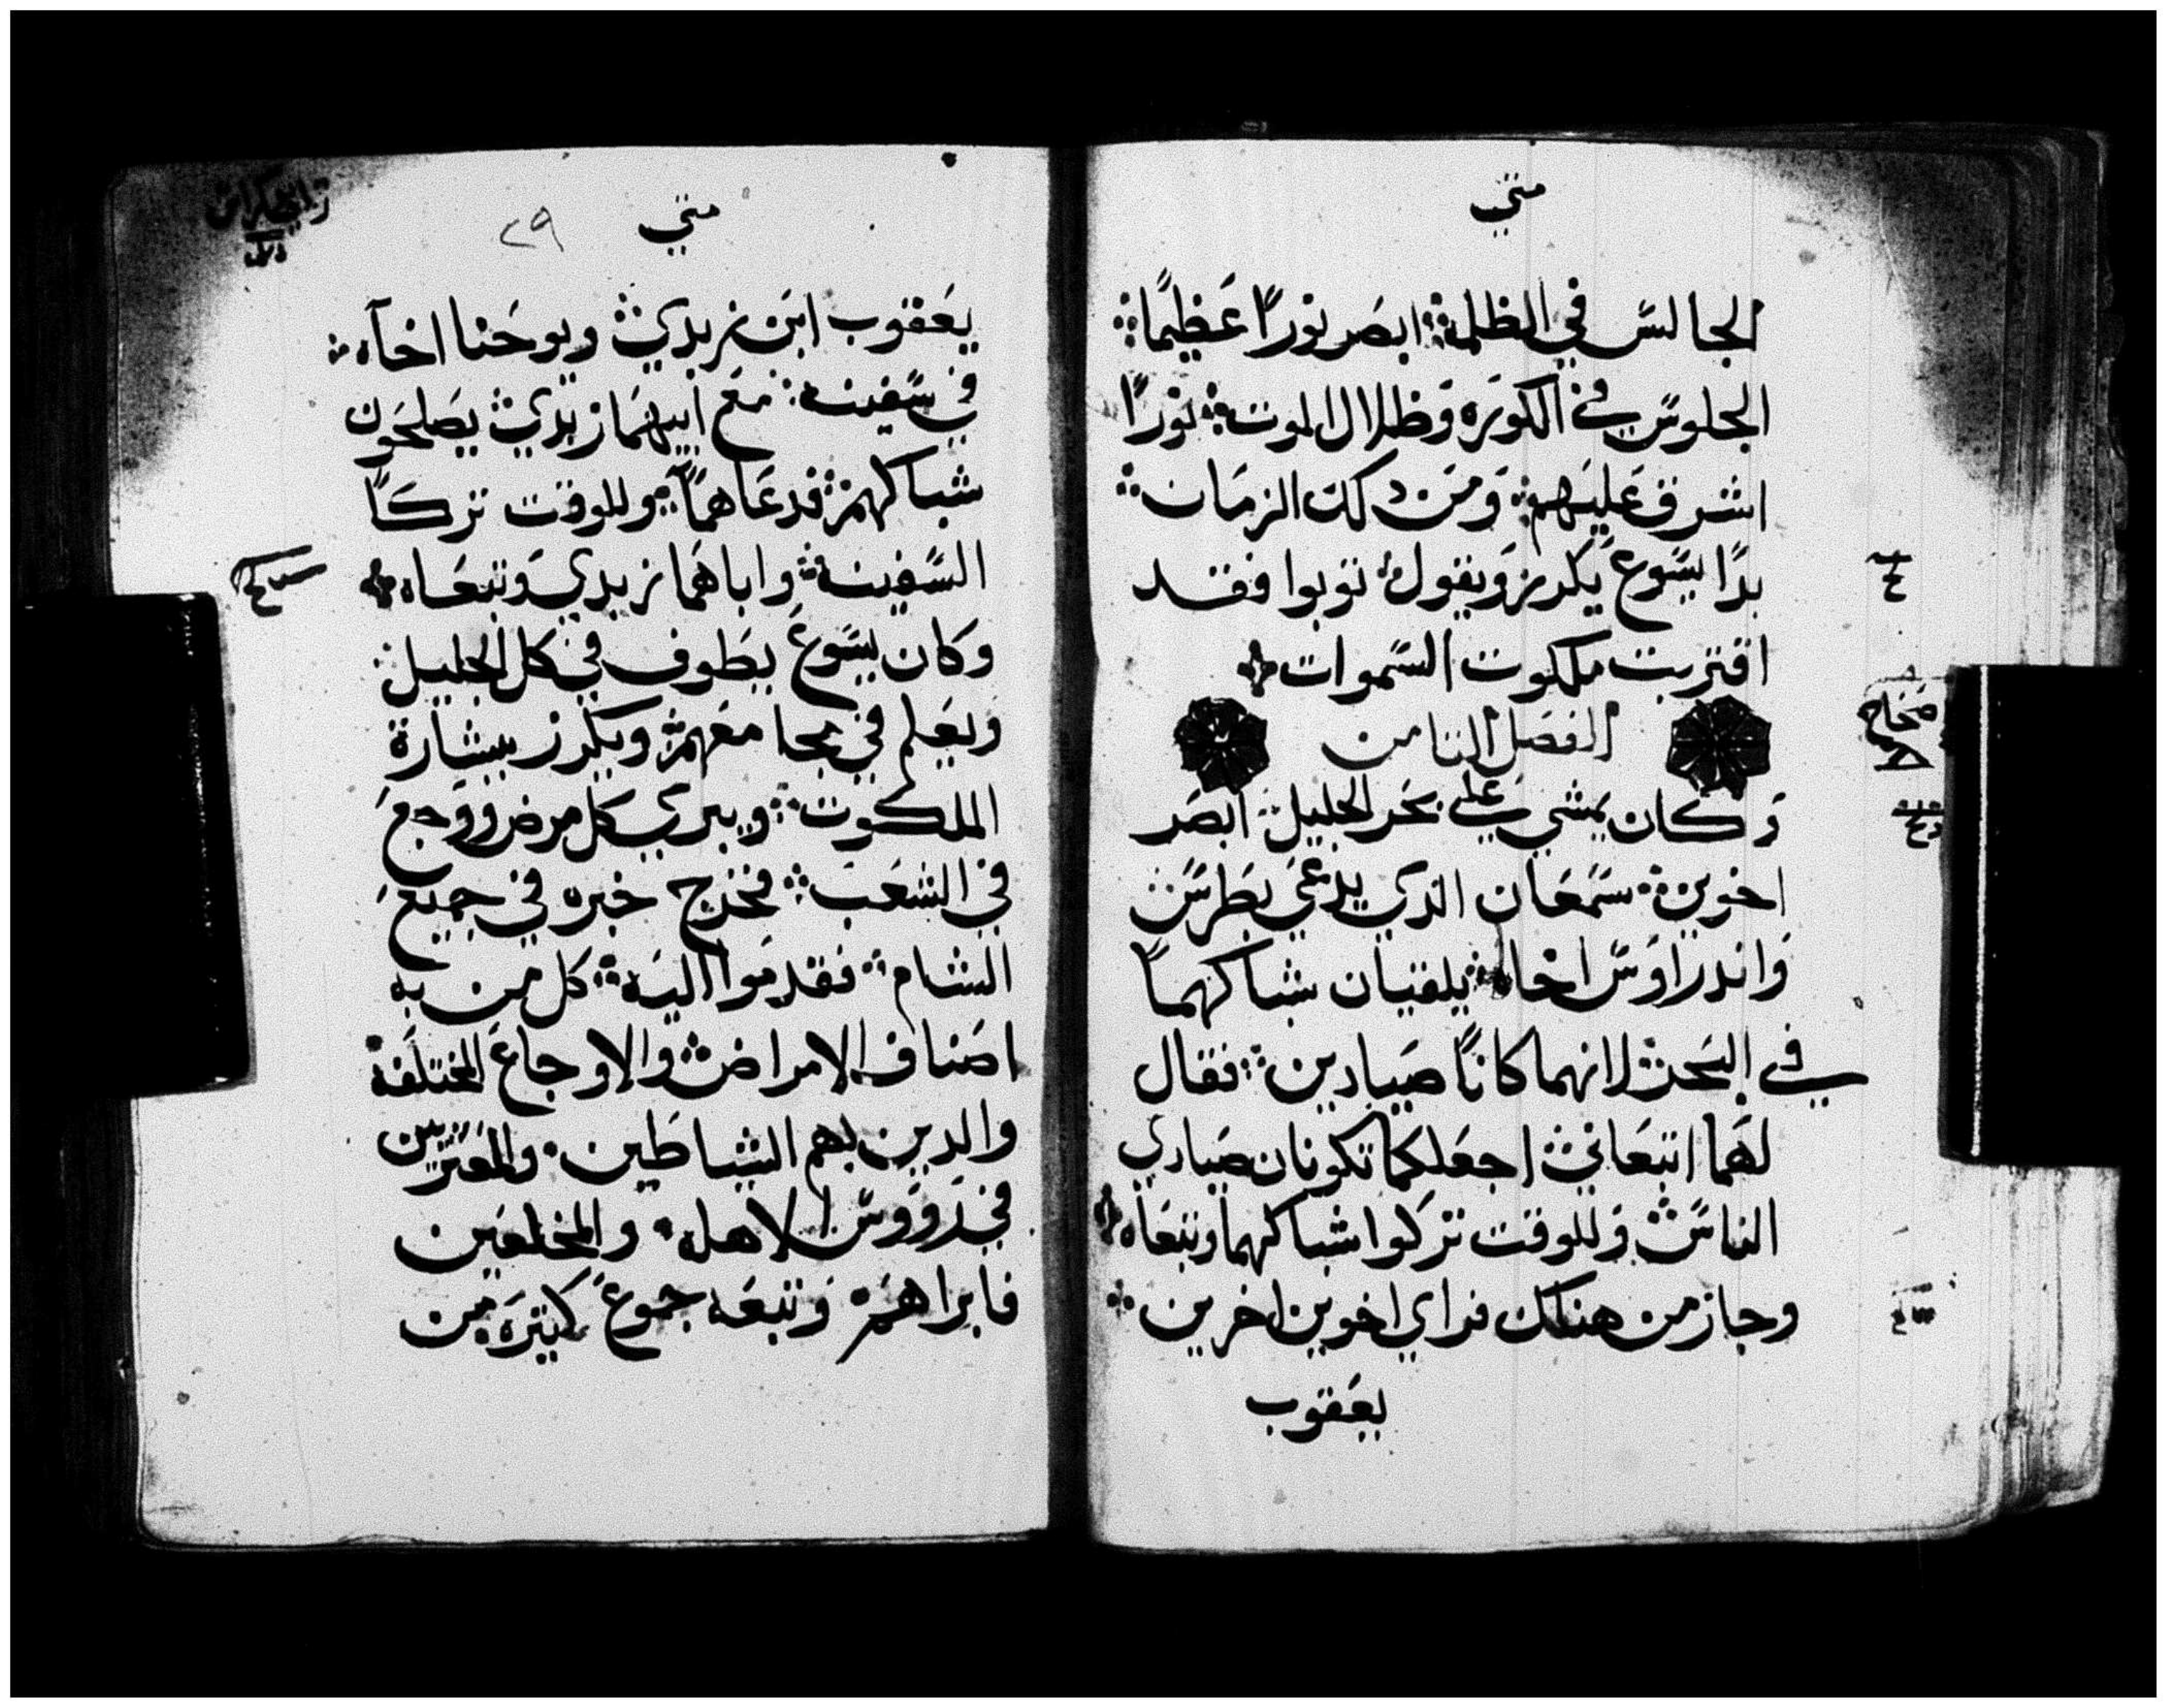 متي
الجالس في الظلمة ابصر نورًا عظيمًا
الجلوس في الكوره وظلال الموت نورًا
اشرق عليهم ومن دلك الزمان
بدا يسوع يكرز ويقول توبوا فقد
اقتربت ملكوت السموات
الفصل الثامن
وكان يمشي علي بحر الجليل ابصر
اخوين سمعان الدي يدعي بطرس
واندراوس اخاه يلقيان شباكهما
في البحر لانهما كانا صيادين فقال
لهما اتبعاني اجعلكما تكونان صيادي
الناس وللوقت تركوا شباكهما وتبعاه
وجاز من هناك فراي اخوين اخرين
يعقوب
متي
٢٩
يعقوب ابن زبدي ويوحنا اخاه
في سفينة مع ابيهما زبدي يصلحون
شباكهم فدعاهما وللوقت تركا
السفينة واباهما زبدي وتبعاه
وكان يسوع يطوف في كل الجليل
ويعلم في مجامعهم ويكرز ببشارة
الملكوت ويبري كل مرض ووجع
في الشعب فخرج خبره في جميع
الشام فقدموا اليه كل من به
اصناف الامراض والاوجاع المختلفة
والدين بهم الشياطين والمعترين
في رووس الاهله والمخلعين
فابراهم وتبعه جموع كتيره من